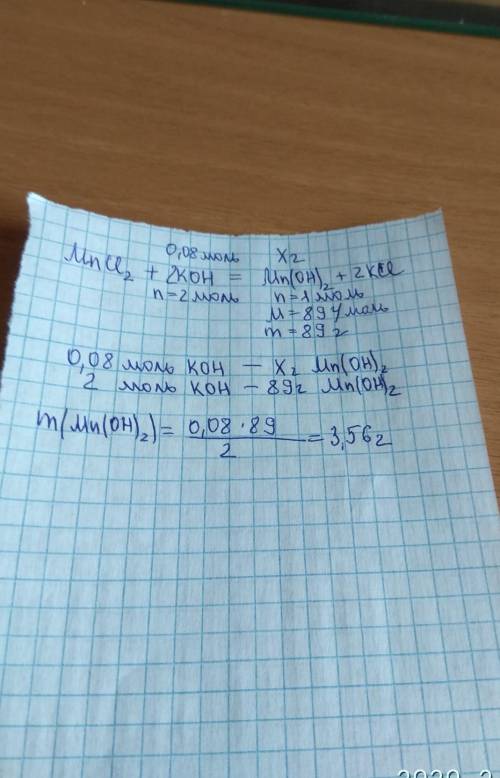 0,08 моль    x г
MnCl₂ + 2KOH = Mn(OH)₂ + 2KCl
n = 2 моль    n = 1 моль
M = 89 г/моль
m = 89 г
0,08 моль KOH — x г Mn(OH)₂
2 моль KOH — 89 г Mn(OH)₂
m(Mn(OH)₂) = 0,08 · 89 / 2 = 3,56 г